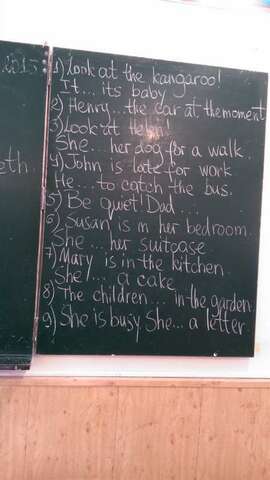 2013
eth.
1) Look at the kangaroo!
It... its baby
2) Henry... the car at the moment
3) Look at Helen!
She... her dog for a walk.
4) John is late for work
He... to catch the bus.
5) Be quiet! Dad...
6) Susan is in her bedroom.
She... her suitcase.
7) Mary is in the kitchen.
She... a cake
8) The children... in the garden.
9) She is busy. She... a letter